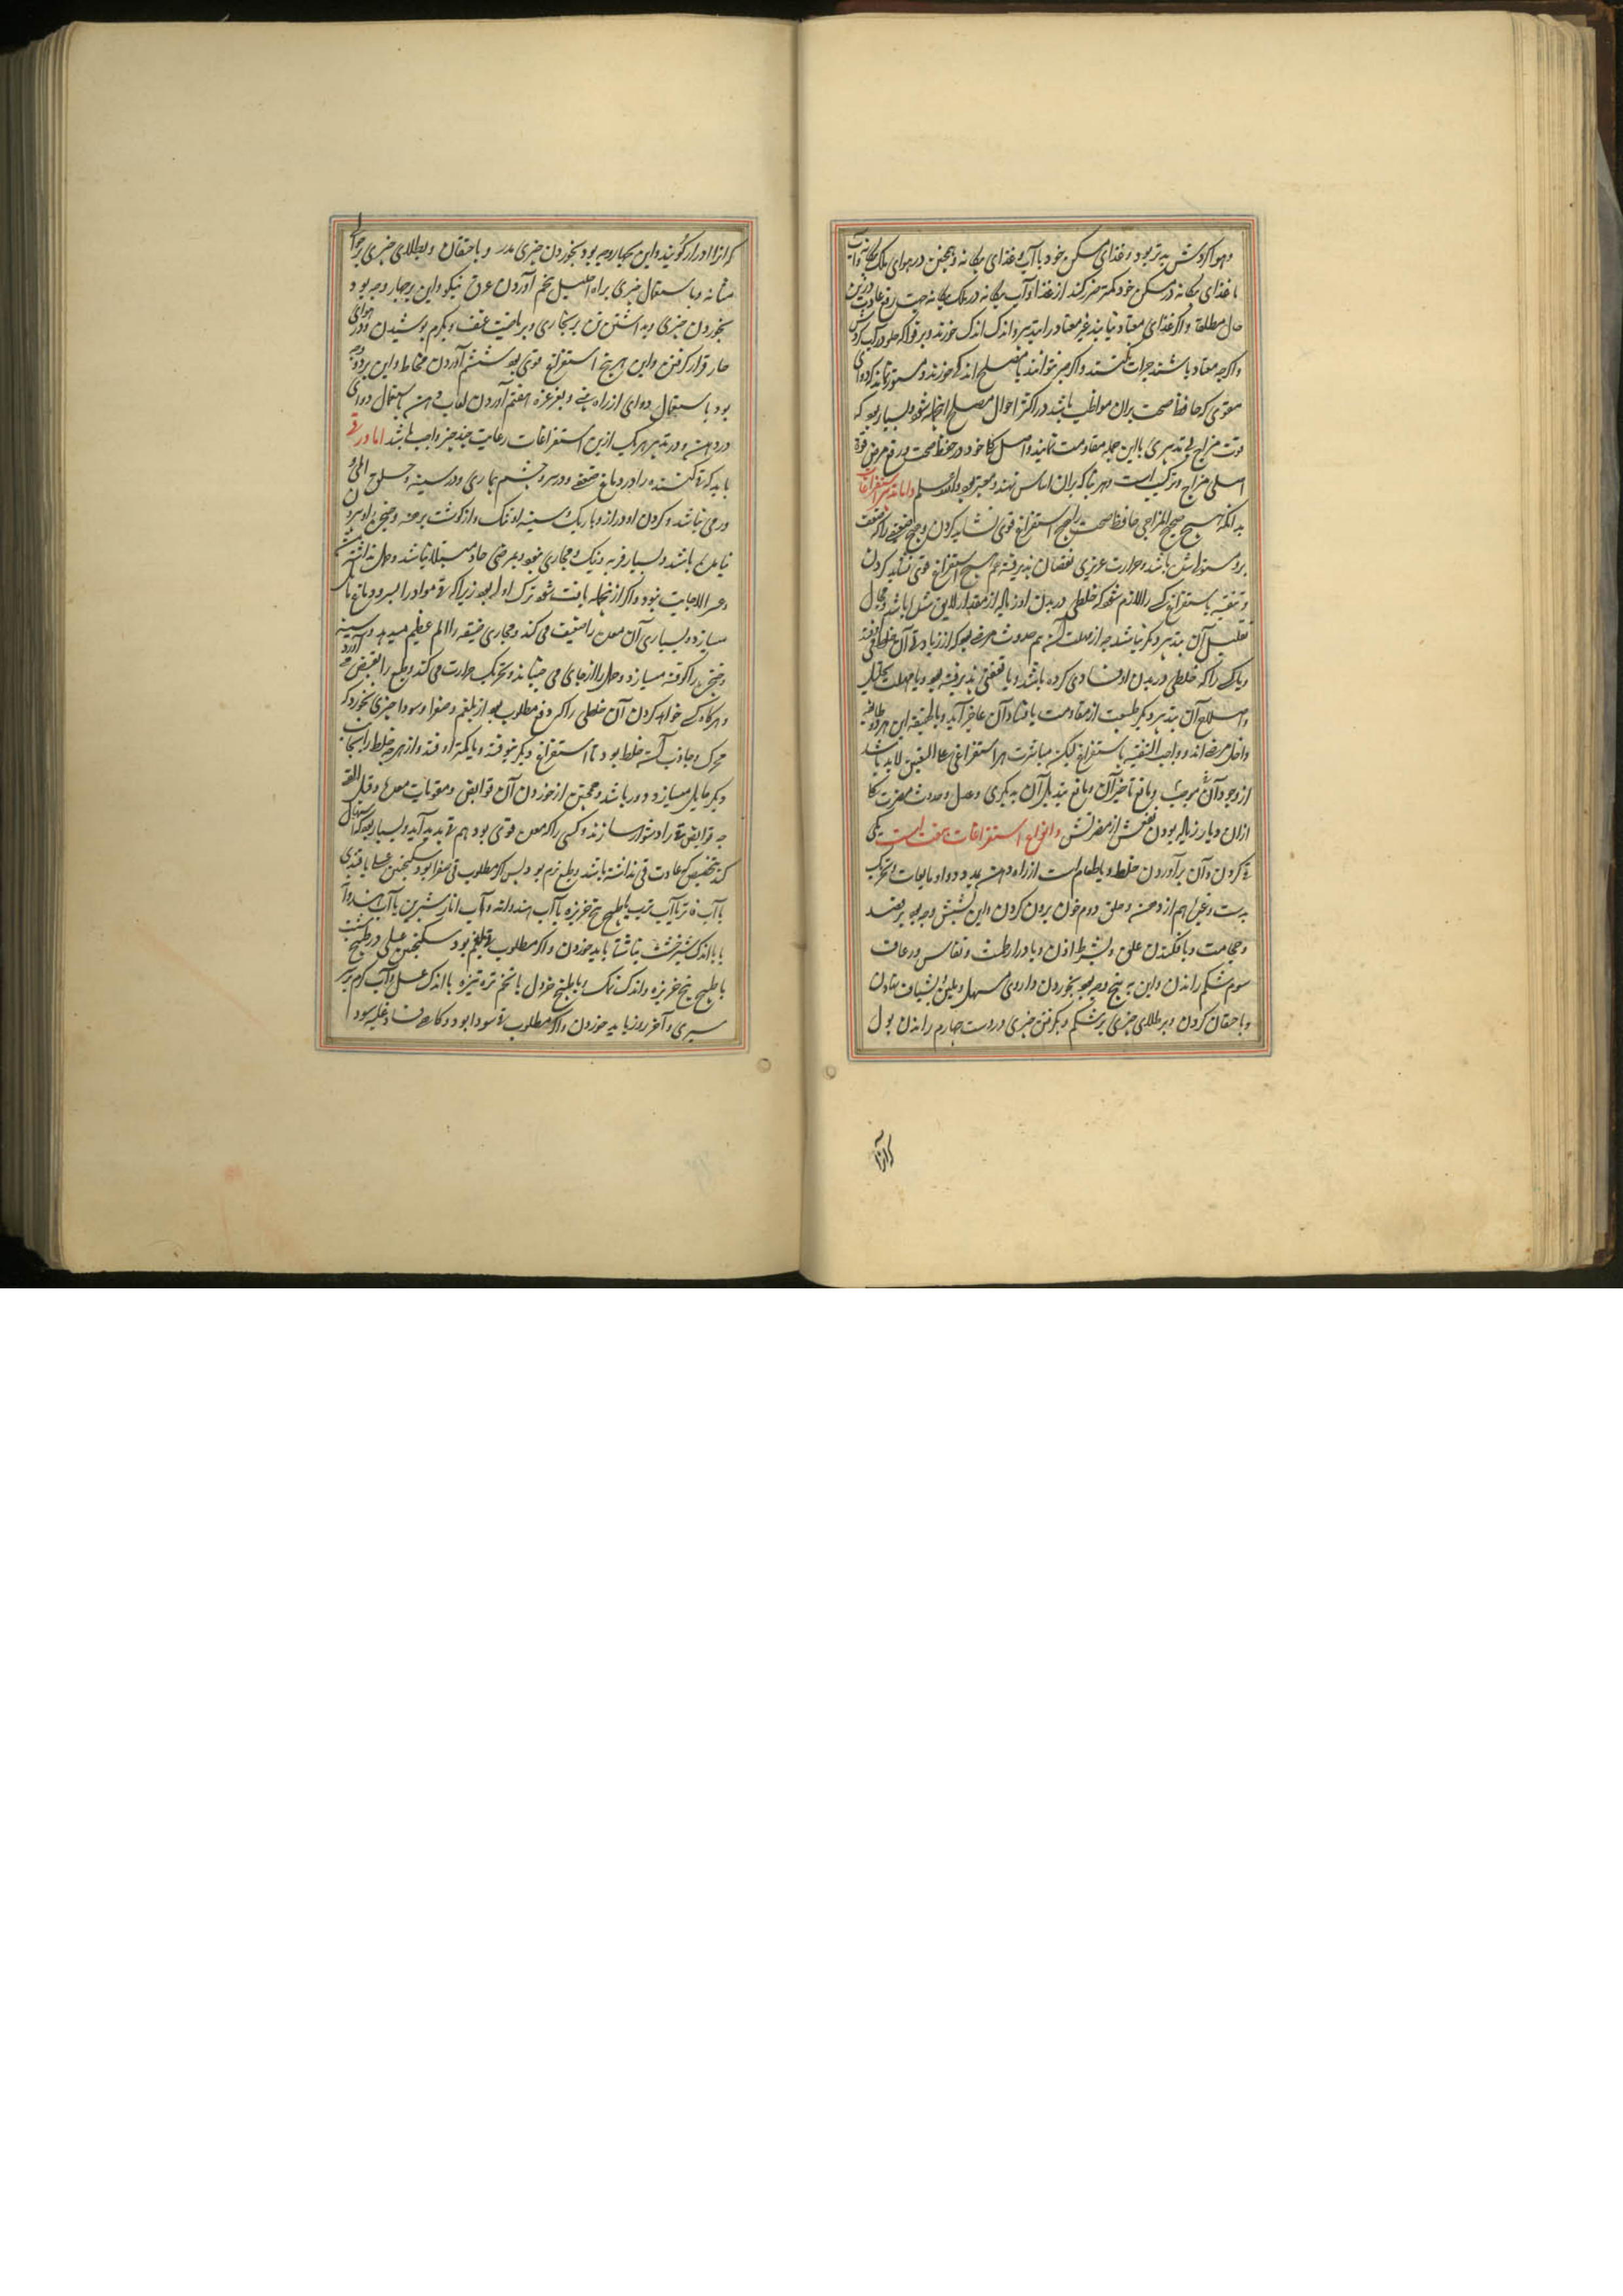 و هوا کردش بدتر بود و غذای مسکن خود با آب و غذای بیکانه و همچنین در هوای ملک بیکانه
با غذای بیکانه در مسکن خود کمتر ضرر کند از غذا و آب بیکانه در ملک بیکانه جهت رفع عادت درین
حال مطلقا و اکر غذای معتاد نیابند غیر معتاد را بتدبیر و اندک اندک خورند و بر فواکه حلو و در آب کردش
و اکرچه معتاد باشند جرات نکنند و اکر جز نتوانند با مصلح اندکی خورند و مستور نماند که دوای
مقوی که حافظ صحت بران مواظب باشد در اکثر احوال مصلح شود و بسیار بود که
قوت مزاج بی تدبیری با این جمله مقاومت نماید و اصل کار خود در حفظ صحت و رفع مرض قوة
اصلی مزاج و ترکیب است و هر بنا که بران اساس نهند معتبر بود و الله اعلم و اما تدبیر استفراغات
بدانکه هیچ صحیح المزاجی حافظ صحت را هیچ استفراغ قوی نشاید کردن و هیچ ضعیفی را که ضعف
برو مستولی باشد و حرارت غریزی نقصان پذیرفته هم هیچ استفراغ قوی نشاید کردن
و تنقیه باستفراغ کسی را لازم شود که خلطی در بدن او زیاده از مقدار لایق باشد و مجال
تقلیل آن بتدبیر دیکر نباشد چه از مهلت بیم حدوث مرض بود که از زیادتی آن خلط افتد
و یا کسی را که خلطی در بدن او فسادی کرده باشد و یا تعفنی پذیرفته بود و یا مهلت تحلیل
و اصلاح آن بتدبیر دیکر طبیعت از مقاومت با فساد آن عاجز آید و این هر دو طایفه
داخل مرضی اند و واجب التنقیه باستفراغ لیکن مباشرت هر استفراغی علی التعیین لابد باشد
از وجود آن موجب و مانع تاخیر آن و مانع تبدیل آن به دیکری و حدوث مضرت کا
ازان و یا زیاده بودن نفعش از مضرتش و انواع استفراغات هفت است یکی
قی کردن و آن برآوردن خلط و یا طعام است از راه دهن بمدد دوا و یا بتحریک
بدست و غیر هم از دهن و حلق دوم خون برون کردن و این بشش وجه بود بفصد
و حجامت و بافکندن علق و بشرط اذن و بادرار طمث و نفاس و رعاف
سوم شکم راندن و این به پنج وجه بود بخوردن داروی مسهل و ملین و بشیاف نهادن
و باحتقان کردن و بر طلای چیزی بر شکم و بکرفتن چیزی در دست چهارم راندن بول
که آنرا
که آنرا ادرار کویند و این بچهار وجه بود بخوردن چیزی مدر و باحتقان و بطلای چیزی بر حوالی
مثانه و باستعمال چیزی براه احلیل پنجم آوردن عرق نیکو و این بر چهار وجه بود
بخوردن چیزی و بداشتن تن بر بخاری و بریاضت عنیف و بکرم پوشیدن و در هوای
حار قرار کرفتن و این هر پنج استفراغ قوی بود ششم آوردن مخاط و این بر دو وجه
بود باستعمال دوای از راه بینی و بغرغره هفتم آوردن لعاب دهن باستعمال دوای
در دهن و در تدبیر هر یک ازین استفراغات رعایت چند چیز واجب باشد اما در قی
باید که قی کننده را در دماغ ضعفی و در سر و چشم بیماری و در سینه و حلق المی و
ورمی نباشد و کردن او دراز و باریک و سینه او تنک و از کوشت برهنه و حنجره او بیرون
نایل باشد و بسیار فربه و تنک مجاری نبود و بمرضی حاد مبتلا نباشد و حمل نداشته باشد
و عسر الاجابت نبود و اکر ازینجمله یافت شود ترک اولی بود زیرا که قی مواد را بسر و دماغ مایل
میسازد و بسیاری آن معده را ضعیف می کند و مجاری ضیقه را الم عظیم میدهد و سینه
و حنجره را کوفته میسازد و حمل را از جای می جنباند و تحریک حرارت می کند و طبع را بقبض می آورد
و هر کاه کسی خواهد کردن آن خلطی را که دفع مطلوب بود از بلغم و صفرا و سودا چیزی بخورد که
محرک و جاذب آن خلط بود تا استفراغ دیکر نیوفتد و یا کمتر اوفتد و از هرچه خلط را بجانب
دیکر مایل میسازد دور باشد و همچنین از خوردن آن قوابض و مقویات معده قبل القی
چه قوابض قی را دشوار سازند و کسی را که معده قوی بود هم قی بد پدید آید و بسیار بود که اسهال
کند بتخصیص که عادت قی نداشته باشد و طبع نرم بود پس اکر مطلوب قی صفرا بود سکنجبین عسلی یا قندی
با آب فاتر یا آب ترب یا طبیخ بیخ خربزه یا آب هندوانه و آب انار شیرین یا آب هندوانه
یا با اندک شیرخشت ناشتا باید خوردن و اکر مطلوب قی بلغم بود سکنجبین عسلی در طبیخ شبت
یا طبیخ بیخ خربزه و اندک نمک و یا طبیخ خردل یا تخم تره تیزه با اندک عسل و آب کرم بر سر
سیری و آخر روز باید خوردن و اکر مطلوب قی سودا بود و کار فساد و غلبه سودا